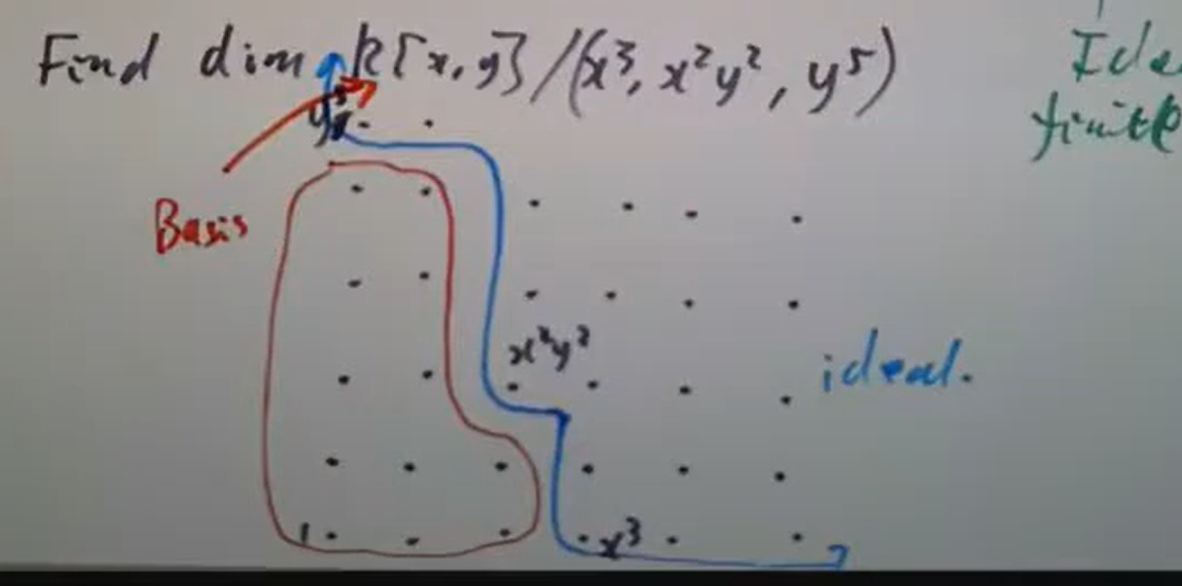 Find dim k[x,y]/(x³, x²y², y⁵)
y⁵
Basis
x²y²
ideal.
1
x³